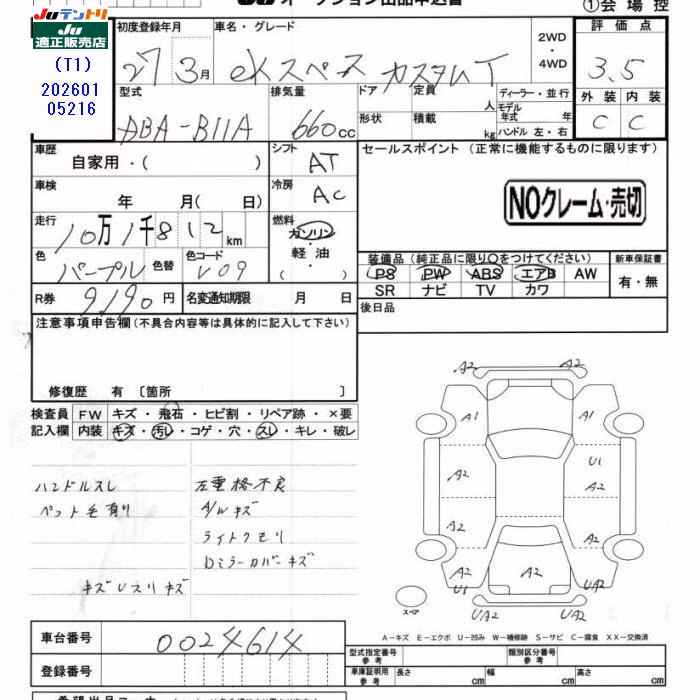 JUテントリ
JU
適正販売店
(T1)
202601
05216
JU オークション出品申込書 ①会場控
初度登録年月 車名・グレード 2WD ・ 4WD 評価点
27 3月 ekスペース カスタムT 3.5
型式 排気量 ドア 定員 人 ディーラー・並行 外装 内装
DBA-B11A 660cc 形状 積載 kg モデル年式 年 ハンドル 左・右 C C
車歴 自家用・( ) シフト AT セールスポイント(正常に機能するものに限ります)
車検 年 月( 日) 冷房 AC NOクレーム・売切
走行 10万1千812km 燃料 ガソリン・軽油・( )
色 パープル 色替 色コード V09 装備品(純正品に限り○をつけてください) 新車保証書
PS PW ABS エアB AW 有・無
SR ナビ TV カワ
R券 9190円 名変通知期限 月 日 後日品
注意事項申告欄(不具合内容等は具体的に記入して下さい)
修復歴 有〔箇所 〕
検査員 FW キズ・飛石・ヒビ割・リペア跡・×要
記入欄 内装 キズ・汚レ・コゲ・穴・スレ・キレ・破レ
ハンドルスレ 左電格不良
ペット毛有り A/Wキズ
ライトクモリ
Dミラーカバーキズ
キズUスリキズ
A2 A2 A2
A1 A1
U1
A2 A2
A2 A2
A2 U1 A2 A2 UA2
スペア UA2 UA2
A-キズ E-エクボ U-凹み W-補修跡 S-サビ C-腐食 XX-交換済
車台番号 0024614 型式指定番号 参考 類別区分番号 参考
登録番号 車庫証明用 参考 長さ cm 幅 cm 高さ cm
希望出品コーナー